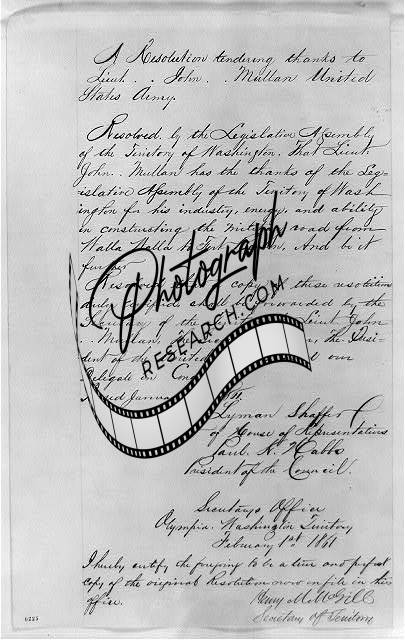 A Resolution tendering thanks to
Lieut. . . John. . Mullan United
States Army.
Resolved. by the Legislative Assembly
of the Territory of Washington. That Lieut.
John. . Mullan has the thanks of the Leg-
islative Assembly of the Territory of Wash
ington for his industry, energy, and ability
in constructing the road from
Walla Walla to And be it
further
cop these resolutions
forwarded by the
of the Lieut John
Mullan, the Presi-
dent of the our
Delegate in Con
Photograph
RESEARCH.COM
Lyman Shaffer
of House of Representatives
Paul. K. Hubbs
President of the Council.
Secretarys Office
Olympia. Washington Territory
February 1st 1861
I hereby certify the foregoing to be a true and perfect
copy of the original Resolution now on file in this
office.
Henry M. McGill
Secretary of Territory
0225